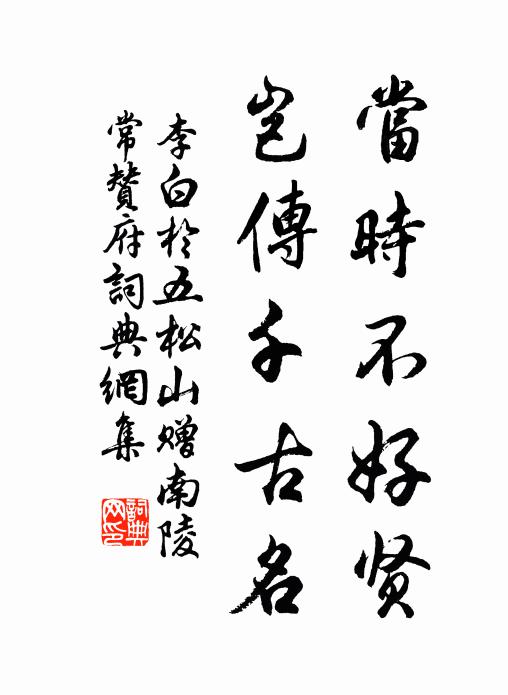 當時不好贤
岂傳千古名
李白於五松山赠南陵
常贊府詞典網集
詞典网印